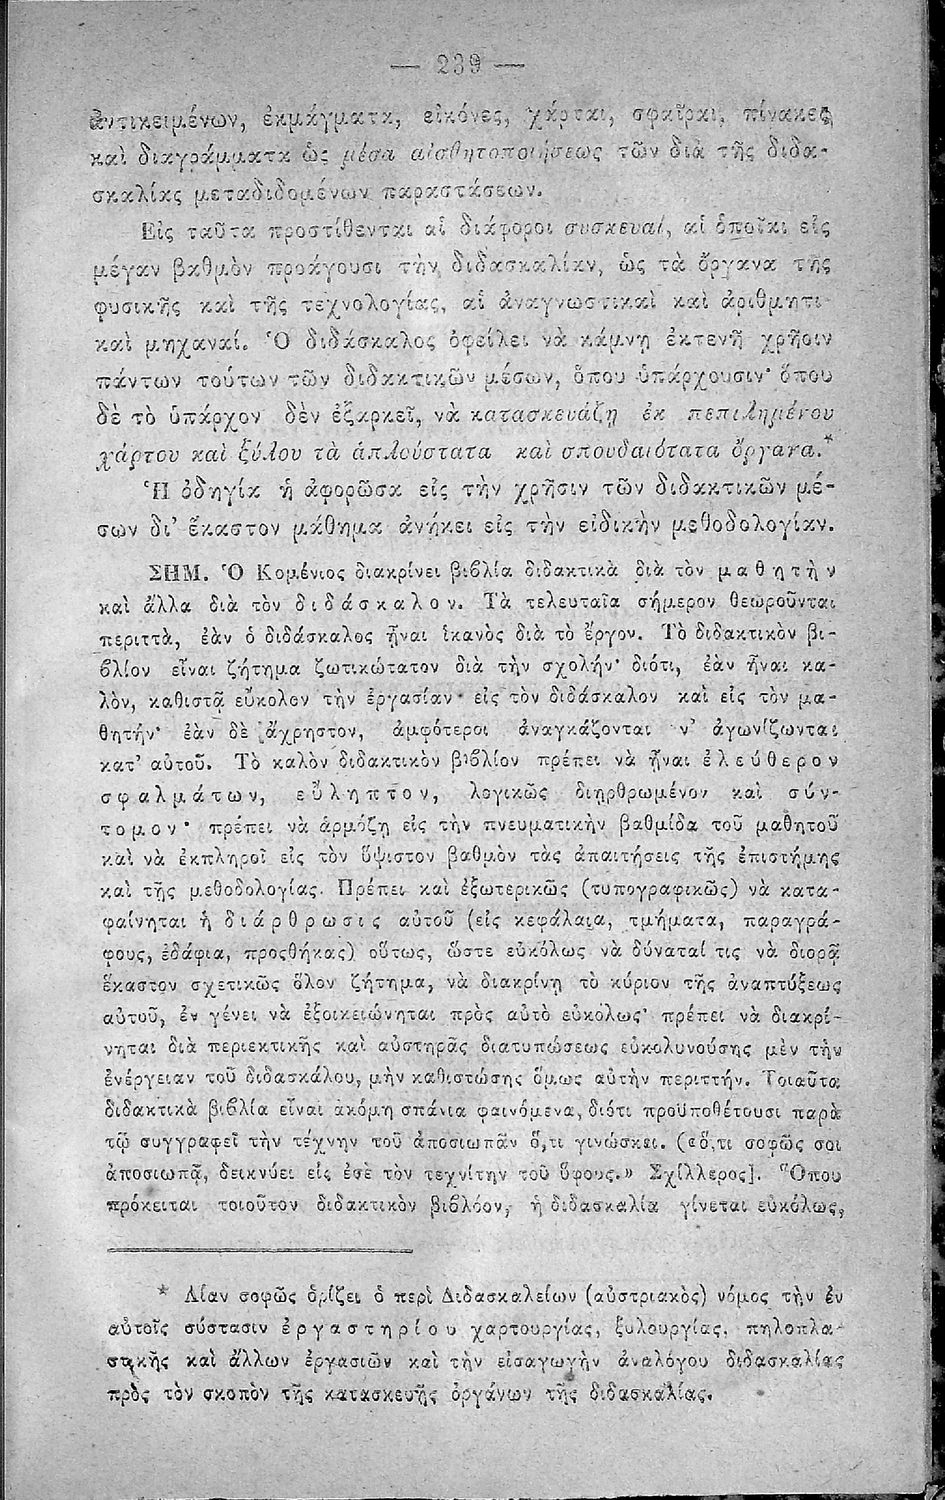 — 239 —
ἀντικειμένων, ἐκμάγματα, εἰκόνες, χάρται, σφαῖραι, πίνακες
καὶ διαγράμματα ὡς μέσα αἰσθητοποιήσεως τῶν διὰ τῆς διδα-
σκαλίας μεταδιδομένων παραστάσεων.
Εἰς ταῦτα προστίθενται αἱ διάφοροι συσκευαί, αἱ ὁποῖαι εἰς
μέγαν βαθμὸν προάγουσι τὴν διδασκαλίαν, ὡς τὰ ὄργανα τῆς
φυσικῆς καὶ τῆς τεχνολογίας, αἱ ἀναγνωστικαὶ καὶ ἀριθμητι-
καὶ μηχαναί. Ὁ διδάσκαλος ὀφείλει νὰ κάμνῃ ἐκτενῆ χρῆσιν
πάντων τούτων τῶν διδακτικῶν μέσων, ὅπου ὑπάρχουσιν· ὅπου
δὲ τὸ ὑπάρχον δὲν ἐξαρκεῖ, νὰ κατασκευάζῃ ἐκ πεπιλημένου
χάρτου καὶ ξύλου τὰ ἁπλούστατα καὶ σπουδαιότατα ὄργανα.*
Ἡ ὁδηγία ἡ ἀφορῶσα εἰς τὴν χρῆσιν τῶν διδακτικῶν μέ-
σων δι' ἕκαστον μάθημα ἀνήκει εἰς τὴν εἰδικὴν μεθοδολογίαν.
ΣΗΜ. Ὁ Κομένιος διακρίνει βιβλία διδακτικὰ διὰ τὸν μαθητὴν
καὶ ἄλλα διὰ τὸν διδάσκαλον. Τὰ τελευταῖα σήμερον θεωροῦνται
περιττὰ, ἐὰν ὁ διδάσκαλος ἦναι ἱκανὸς διὰ τὸ ἔργον. Τὸ διδακτικὸν βι-
βλίον εἶναι ζήτημα ζωτικώτατον διὰ τὴν σχολήν· διότι, ἐὰν ἦναι κα-
λὸν, καθιστᾷ εὔκολον τὴν ἐργασίαν εἰς τὸν διδάσκαλον καὶ εἰς τὸν μα-
θητήν· ἐὰν δὲ ἄχρηστον, ἀμφότεροι ἀναγκάζονται ν' ἀγωνίζωνται
κατ' αὐτοῦ. Τὸ καλὸν διδακτικὸν βιβλίον πρέπει νὰ ἦναι ἐλεύθερον
σφαλμάτων, εὔληπτον, λογικῶς διηρθρωμένον καὶ σύν-
τομον· πρέπει νὰ ἁρμόζῃ εἰς τὴν πνευματικὴν βαθμίδα τοῦ μαθητοῦ
καὶ νὰ ἐκπληροῖ εἰς τὸν ὕψιστον βαθμὸν τὰς ἀπαιτήσεις τῆς ἐπιστήμης
καὶ τῆς μεθοδολογίας. Πρέπει καὶ ἐξωτερικῶς (τυπογραφικῶς) νὰ κατα-
φαίνηται ἡ διάρθρωσις αὐτοῦ (εἰς κεφάλαια, τμήματα, παραγρά-
φους, ἐδάφια, προσθήκας) οὕτως, ὥστε εὐκόλως νὰ δύναταί τις νὰ διορᾷ
ἕκαστον σχετικῶς ὅλον ζήτημα, νὰ διακρίνῃ τὸ κύριον τῆς ἀναπτύξεως
αὐτοῦ, ἐν γένει νὰ ἐξοικειώνηται πρὸς αὐτὸ εὐκόλως· πρέπει νὰ διακρί-
νηται διὰ περιεκτικῆς καὶ αὐστηρᾶς διατυπώσεως εὐκολυνούσης μὲν τὴν
ἐνέργειαν τοῦ διδασκάλου, μὴν καθιστώσης ὅμως αὐτὴν περιττήν. Τοιαῦτα
διδακτικὰ βιβλία εἶναι ἀκόμη σπάνια φαινόμενα, διότι προϋποθέτουσι παρὰ
τῷ συγγραφεῖ τὴν τέχνην τοῦ ἀποσιωπᾶν ὅ,τι γινώσκει. («ὅ,τι σοφῶς σοι
ἀποσιωπᾷ, δεικνύει εἰς ἐσὲ τὸν τεχνίτην τοῦ ὕφους.» Σχίλλερος]. Ὅπου
πρόκειται τοιοῦτον διδακτικὸν βιβλίον, ἡ διδασκαλία γίνεται εὐκόλως,
* Λίαν σοφῶς ὁρίζει ὁ περὶ Διδασκαλείων (αὐστριακὸς) νόμος τὴν ἐν
αὐτοῖς σύστασιν ἐργαστηρίου χαρτουργίας, ξυλουργίας, πηλοπλα-
στικῆς καὶ ἄλλων ἐργασιῶν καὶ τὴν εἰσαγωγὴν ἀναλόγου διδασκαλίας
πρὸς τὸν σκοπὸν τῆς κατασκευῆς ὀργάνων τῆς διδασκαλίας.